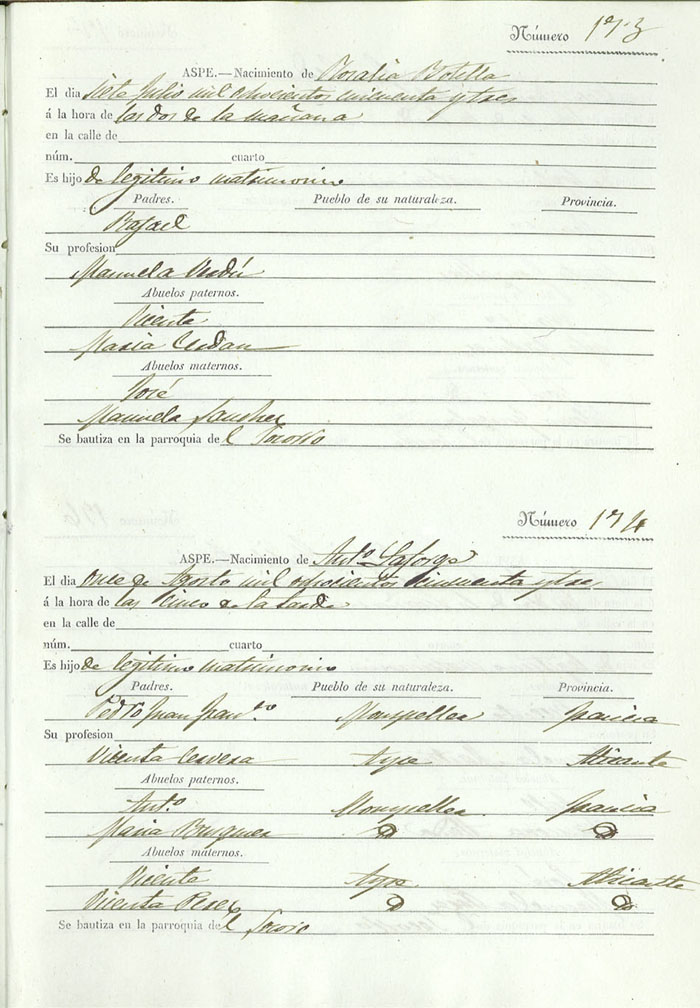 Número 173
ASPE.—Nacimiento de Rosalia Botella
El dia siete Julio mil ochocientos cincuenta y tres
á la hora de las dos de la mañana
en la calle de
núm. cuarto
Es hijo de legitimo matrimonio
Padres. Pueblo de su naturaleza. Provincia.
Rafael
Su profesion
Manuela Verdú
Abuelos paternos.
Vicente
Maria Cerdan
Abuelos maternos.
José
Manuela Sanchez
Se bautiza en la parroquia del Socorro
Número 174
ASPE.—Nacimiento de Ant.º Laforga
El dia once de Agosto mil ochocientos cincuenta y tres
á la hora de las cinco de la tarde
en la calle de
núm. cuarto
Es hijo de legitimo matrimonio
Padres. Pueblo de su naturaleza. Provincia.
Pedro Juan Fran.co Monpeller Francia
Su profesion
Vicenta Cervera Aspe Alicante
Abuelos paternos.
Ant.º Monpeller Francia
Maria
Abuelos maternos.
Vicente Aspe Alicante
Vicenta Perez
Se bautiza en la parroquia del Socorro